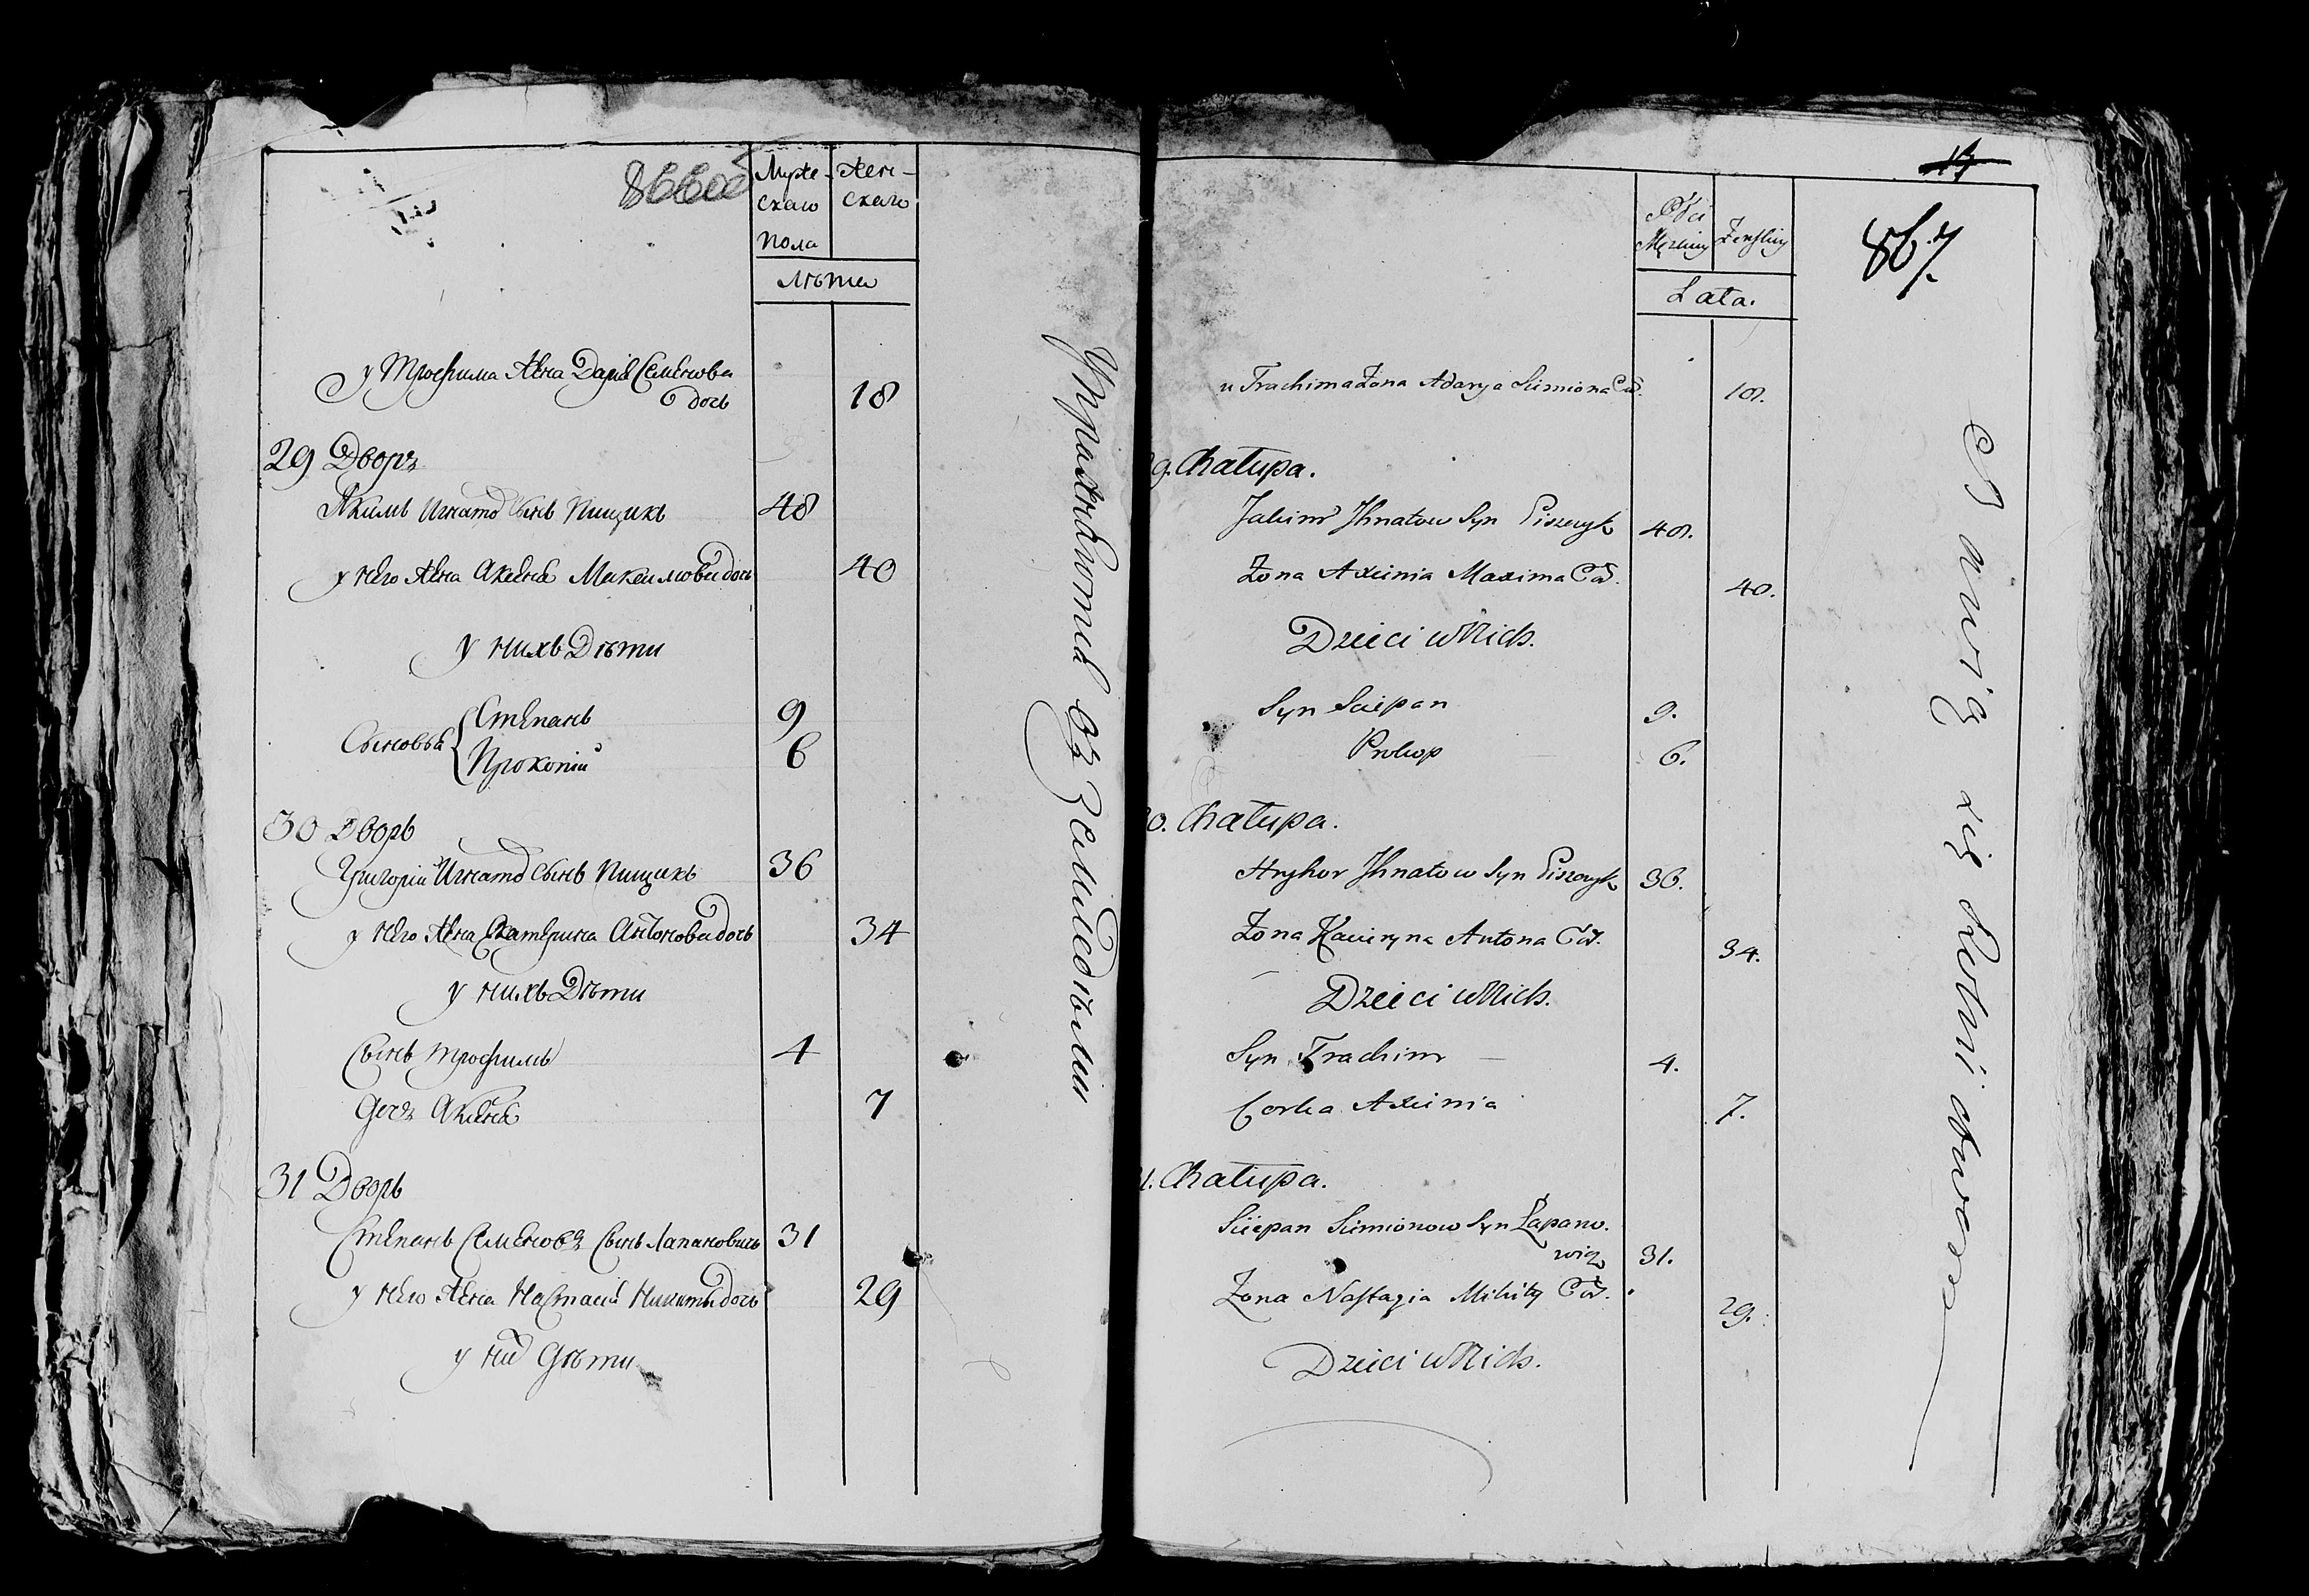 866об
Муже-
скаго
пола
Жен-
скаго
Лѣта
у Трофима жена Дарія Семенова
дочь 18
29 Дворъ
Якимъ Игнатов сынъ Пищикъ 48
у него жена Аксенія Максимова дочь 40
у нихъ Дѣти
Сыновья { Степанъ 9
Прокопій 6
30 Дворъ
Григорій Игнатов сынъ Пищикъ 36
у него жена Екатерина Антонова дочь 34
у нихъ Дѣти
Сынъ Трофимъ 4
Дочь Аксенія 7
31 Дворъ
Степанъ Семеновъ сынъ Лапановичъ 31
у него жена Настасія Никиты дочь 29
у них Дѣти
Упражняются въ Земледѣліи
13
867.
Płci
Męzkiey
Żeńskiey
Lata.
u Trachima Żona Adarya Siemiona Cór. 18.
9. Chałupa.
Jakim Jhnatow Syn Piszczyk 48.
Żona Axinia Maxima Cór. 40.
Dzieci u Nich.
Syn Sciepan 9.
Prokop 6.
0. Chałupa.
Hryhor Jhnatow Syn Piszczyk 36.
Żona Kaciryna Antona Cór. 34.
Dzieci u Nich.
Syn Trachim 4.
Corka Axinia 7.
1. Chałupa.
Sciepan Siemionow Syn Łapano-
wicz 31.
Żona Nastazia Mikity Cór. 29.
Dzieci u Nich.
Bawią się Rolnictwem